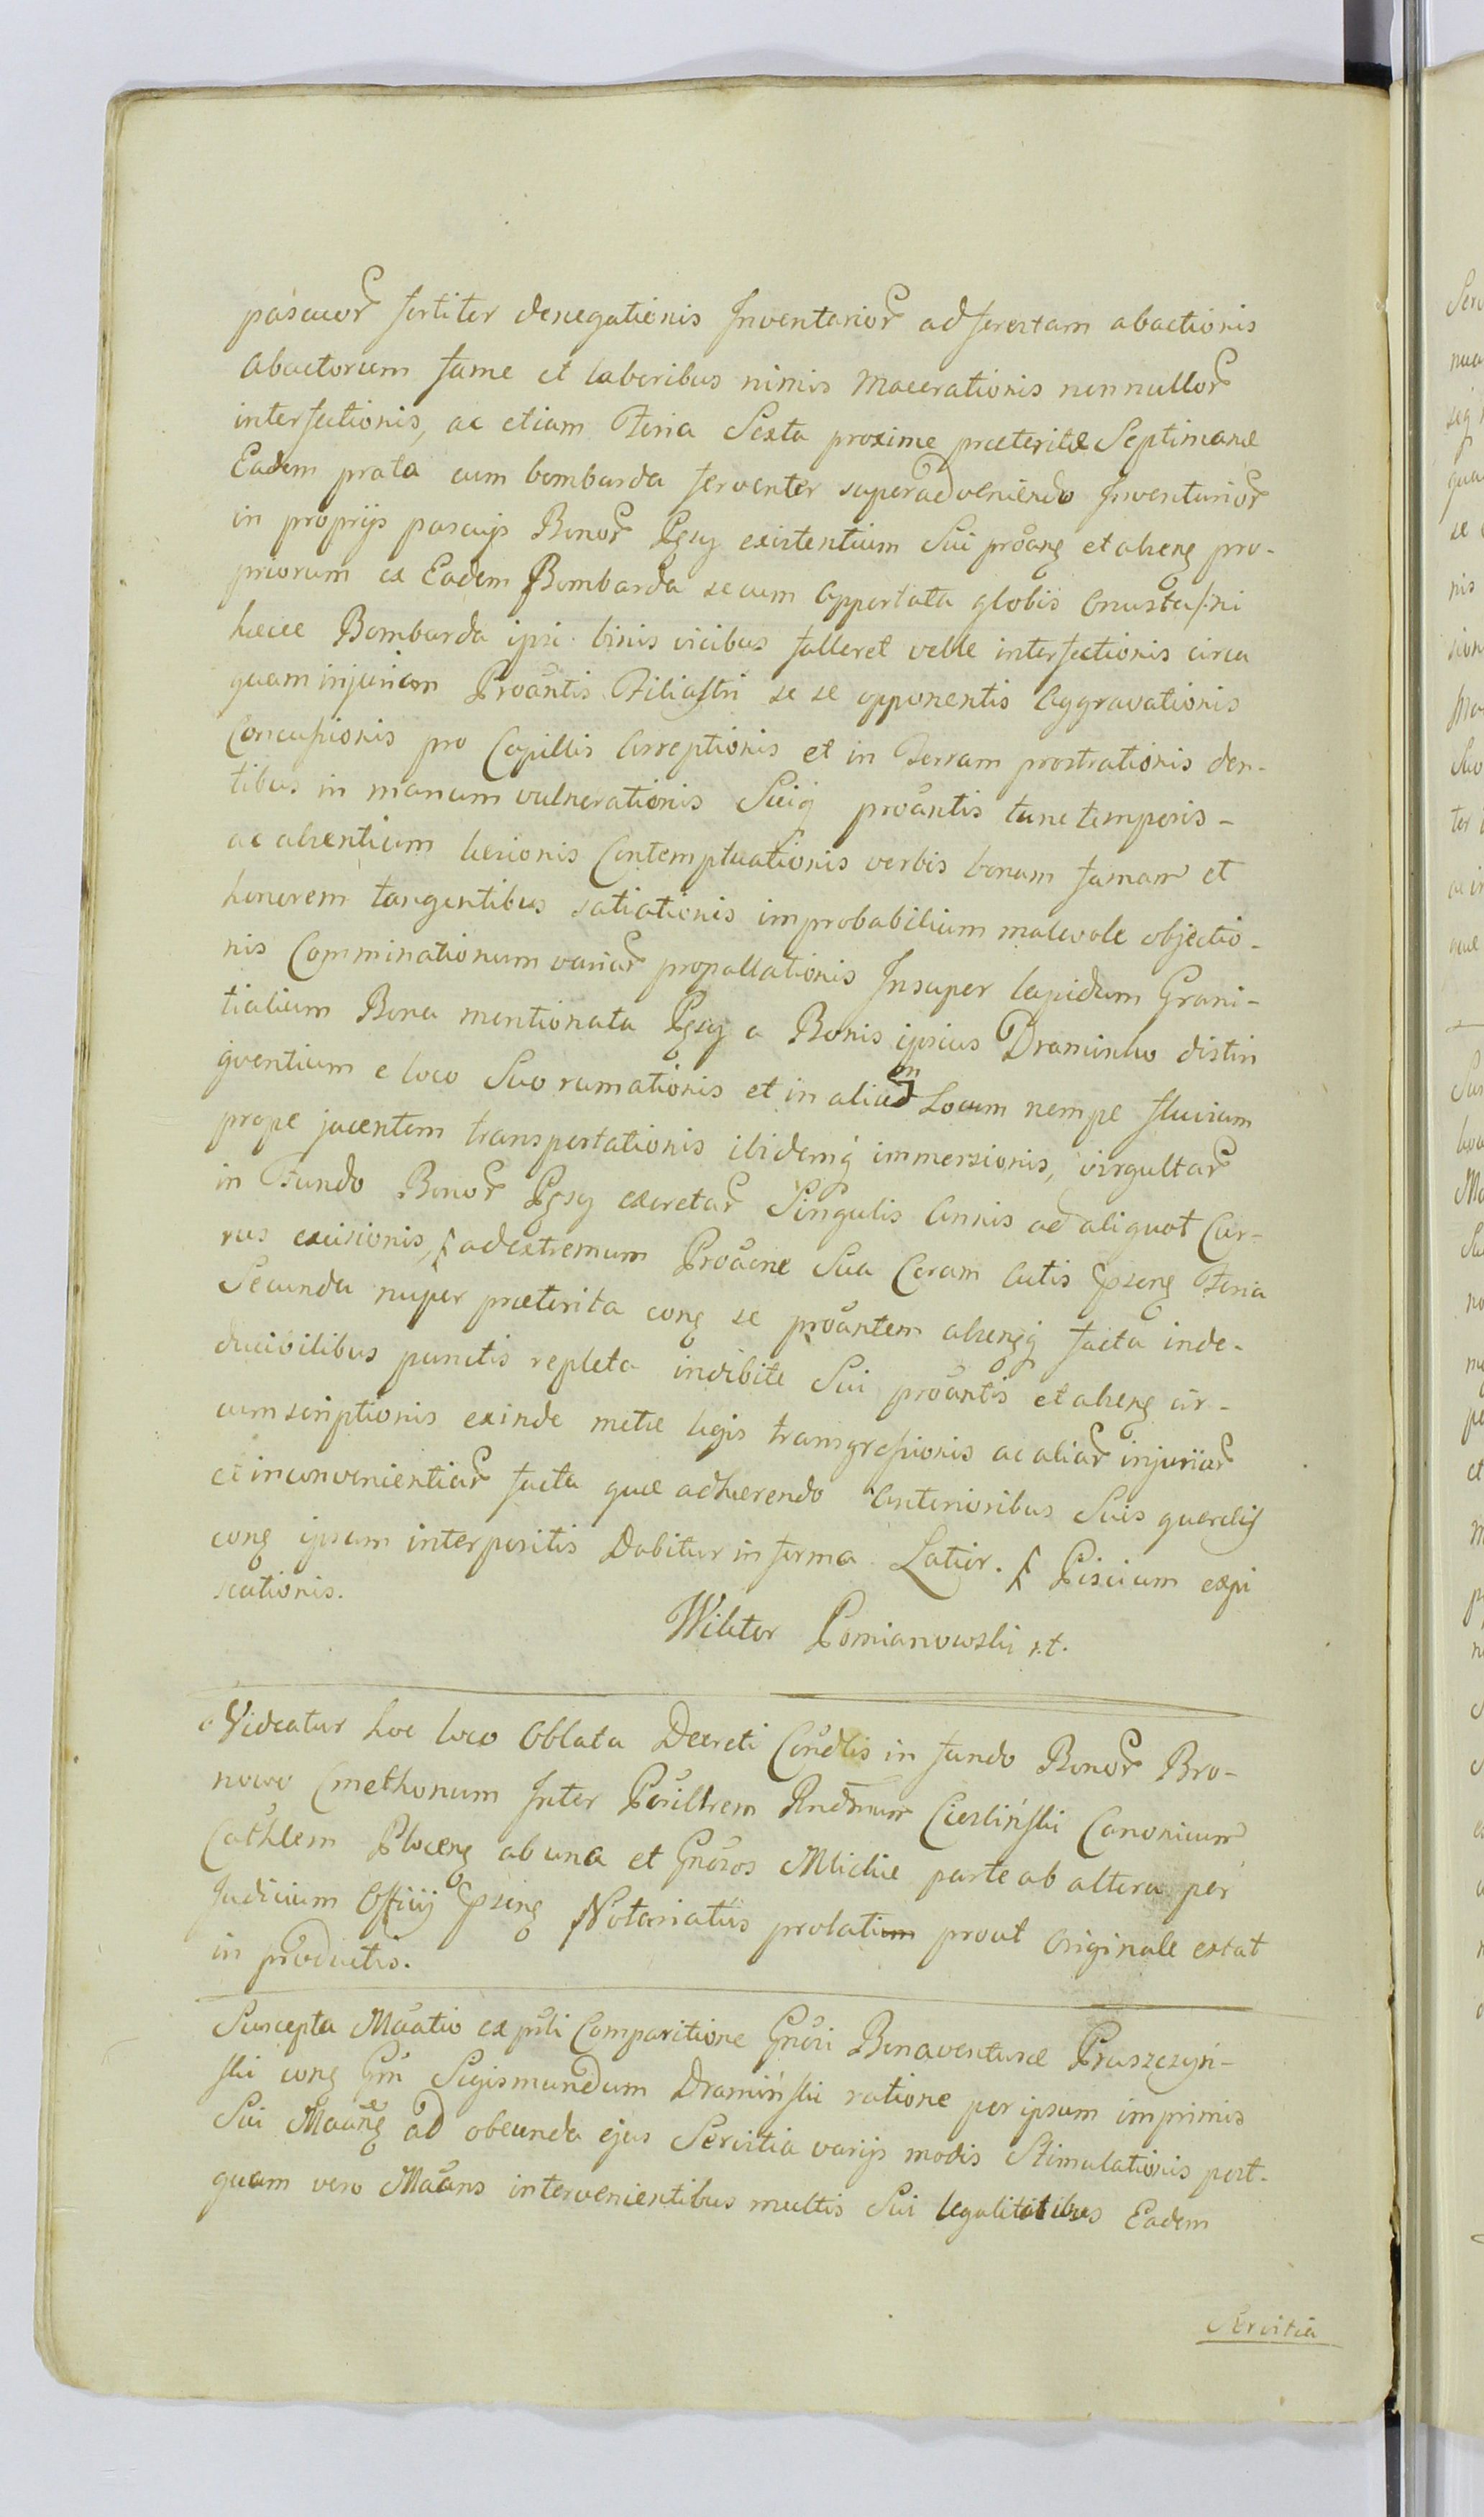 pascuor fortiter denegationis Inventarior ad ferextam abactionis
abactorum fame et laboribus nimis macerationis nonnullor
interfectionis, ac etiam Feria Sexta proxime præteritæ Septimanæ
Eadem prata cum bombarda ferventer superadveniendo Inventarior
in proprijs pascuijs Bonor Pgsy existentium Sui proang et alieng pro-
priorum ex Eadem Bombarda secum apportata globis onusta /:ni
hæcce Bombarda ipsi binis vicibus falleret velle interfectionis circa
quam injuriam Proantis Filiastri se se opponentis aggravationis
Concussionis pro Capillis arreptionis et in Terram prostrationis den-
tibus in manum vulnerationis Suiq proantis tunc temporis -
ac absentium læsionis Contemptuationis verbis bonam famam et
honorem tangentibus satiationis improbabilium malevole objectio-
nis Comminationum variar propallationis Insuper lapidum Grani-
tialium Bona mentionata Pgsy a Bonis ipsius Draminko distin
gventium e loco Suo rumationis et in alium Locum nempe fluvium
prope jacentem transportationis ibidemq immersionis, virgultar
in Fundo Bonor Pgsy excretar Singulis Annis ad aliquot Cur-
rus excisionis, ad extremum Proaone Sua Coram Actis Pszng Feria
Secunda nuper præterita cong se proantem aliengq facta inde-
ducibilibus punctis repleta indibite Sui proantis et alieng cir-
cumscriptionis exinde metæ legis transgressionis ac aliar injuriar
et inconvenientiar facta quæ adhærendo anterioribus Suis querelis
cong ipsum interpositis Dabitur in forma Latior. Piscium expi
scationis.
Wiktor Pomianowski r.t.
Videatur hoc loco Oblata Decreti Condlis in fundo Bonor Bro-
nowo Cmethonum Inter Perillrem Rndmum Ciesliński Canonicum
Cathlem Ploceng ab una et Gnosos Mlickie parte ab altera per
Judicium Officij Pszng Notariatûs prolatum prout Originale extat
in productis.
Suscepta Maatio ex psti Comparitione Gnosi Bonaventuræ Pruszczyń-
ski cong Gm Sigismundum Dramiński ratione per ipsum imprimis
Sui Maang ad obeunda ejus Servitia varijs modis Stimulationis post-
quam vero Maans intervenientibus multis Sui legalitatibus Eadem
Servitia